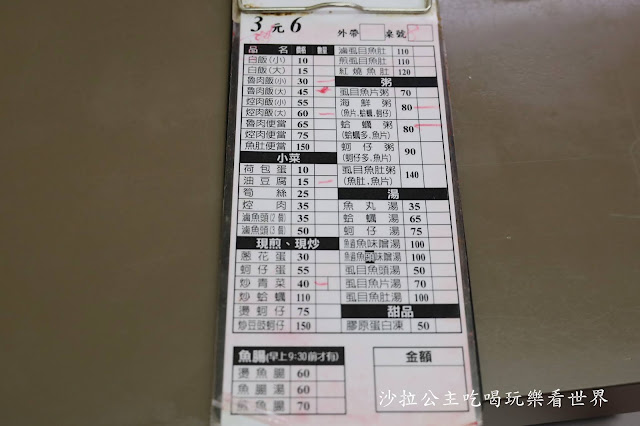 3元6
外帶 桌號
品名
白飯(小) 10
白飯(大) 15
魯肉飯(小) 30
魯肉飯(大) 45
焢肉飯(小) 55
焢肉飯(大) 60
魯肉便當 65
焢肉便當 75
魚肚便當 150
小菜
荷包蛋 10
油豆腐 15
筍絲 25
焢肉 35
滷魚頭(2個) 35
滷魚頭(3個) 50
現煎、現炒
蔥花蛋 30
蚵仔蛋 55
炒青菜 40
炒蛤蠣 110
燙蚵仔 75
炒豆豉蚵仔 150
滷虱目魚肚 110
煎虱目魚肚 110
紅燒魚肚 120
粥
虱目魚片粥 70
海鮮粥 80
(魚片,蛤蠣,蚵仔)
蛤蠣粥 80
(蛤蠣多,魚片)
蚵仔粥 90
(蚵仔多,魚片)
虱目魚肚粥 140
(魚肚,魚片)
湯
魚丸湯 35
蛤蠣湯 65
蚵仔湯 75
魚味噌湯 100
味噌湯 100
虱目魚頭湯 50
虱目魚片湯 70
虱目魚肚湯 100
甜品
膠原蛋白凍 50
魚腸(早上9:30前才有)
燙魚腸 60
魚腸湯 60
魚腸 70
金額
沙拉公主吃喝玩樂看世界